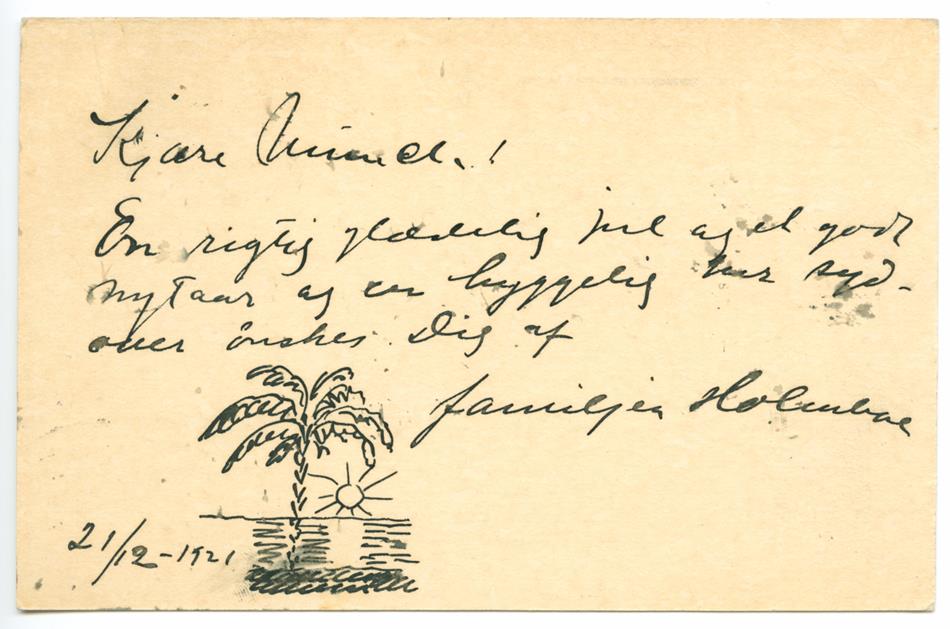 Kjære Munch.!
En rigtig glædelig jul og et godt
nytaar og en hyggelig tur syd-
over ønskes Dig af
familjen Holmboe
21/12-1921